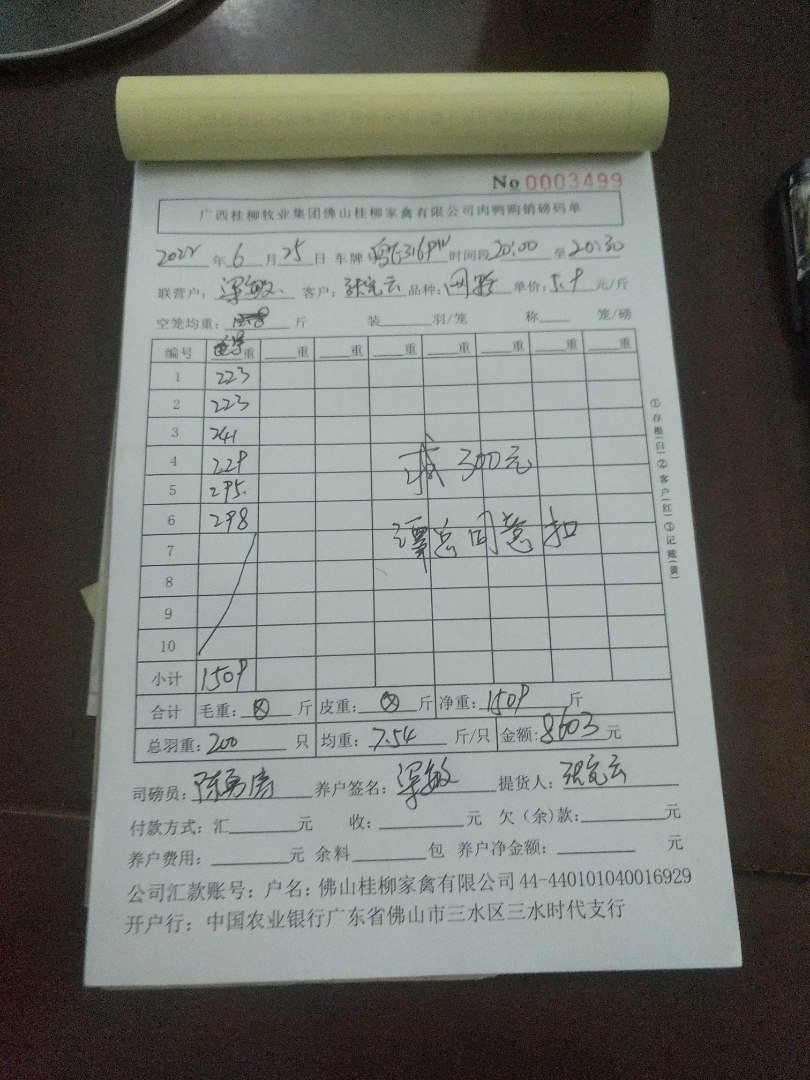 No 0003499
广西桂柳牧业集团佛山桂柳家禽有限公司肉鸭购销磅码单
2022年6月25日 车牌 316PW 时间段20:00至20:30
联营户: 梁敏 客户: 张完云 品种: 单价: 5.9元/斤
空笼均重: 斤 装 羽/笼 称 笼/磅
编号 重 重 重 重 重 重 重 重
1 223
2 223
3 241
4 229
5 295.
6 298
7
8
9
10
减300元
谭总同意扣
小计 1509
合计 毛重: 斤 皮重: 斤 净重: 1509 斤
总羽重: 200 只 均重: 7.54 斤/只 金额: 8603元
司磅员: 养户签名: 梁敏 提货人: 张完云
付款方式: 汇 元 收: 元 欠(余)款: 元
养户费用: 元 余料 包 养户净金额: 元
公司汇款账号: 户名: 佛山桂柳家禽有限公司 44-440101040016929
开户行: 中国农业银行广东省佛山市三水区三水时代支行
①存根(白)②客户(红)③记账(黄)